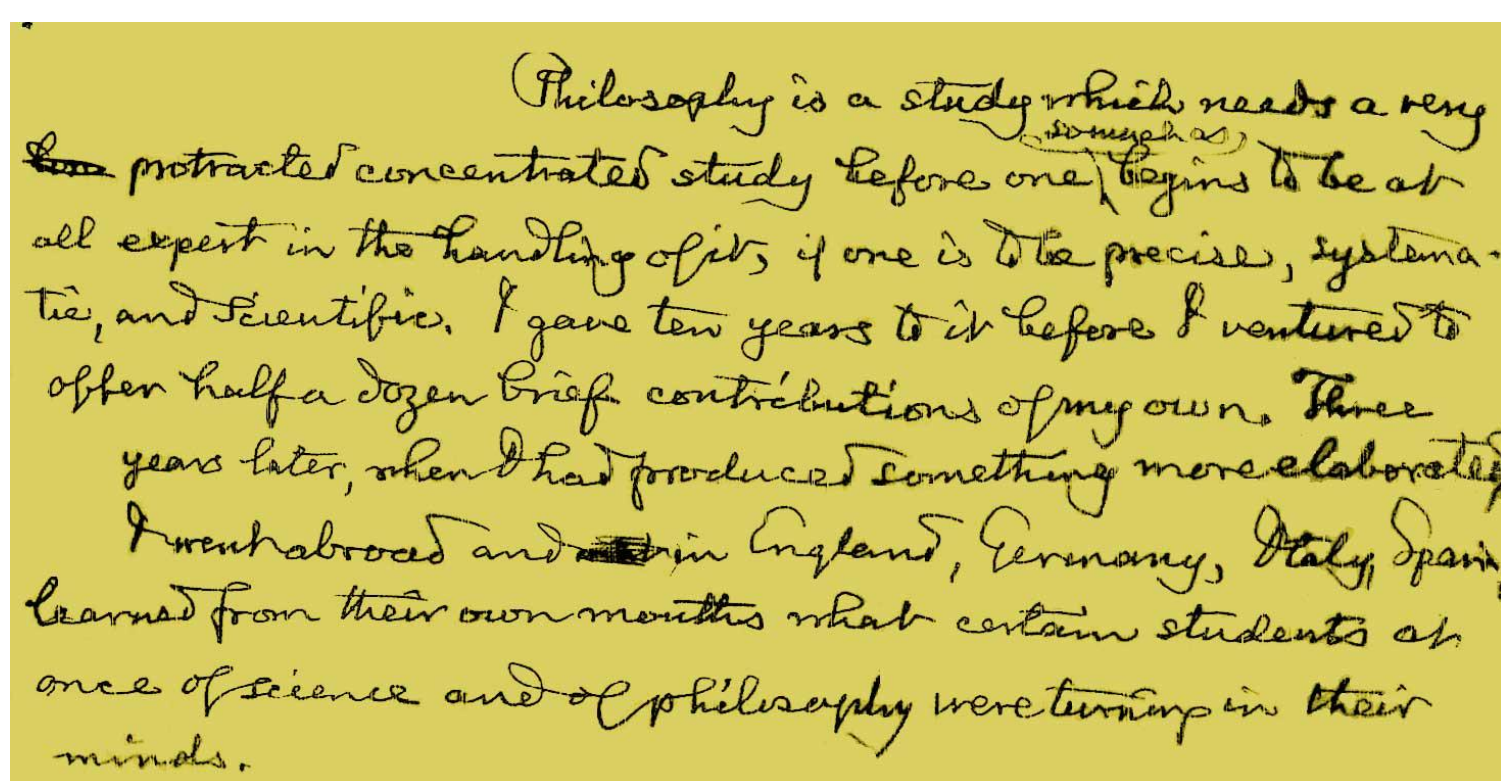 Philosophy is a study which needs a very
protracted concentrated study before one so much as begins to be at
all expert in the handling of it, if one is to be precise, systema-
tic, and scientific. I gave ten years to it before I ventured to
offer half a dozen brief contributions of my own. Three
years later, when I had produced something more elaborated,
I went abroad and in England, Germany, Italy, Spain,
learned from their own mouths what certain students at
once of science and of philosophy were turning in their
minds.